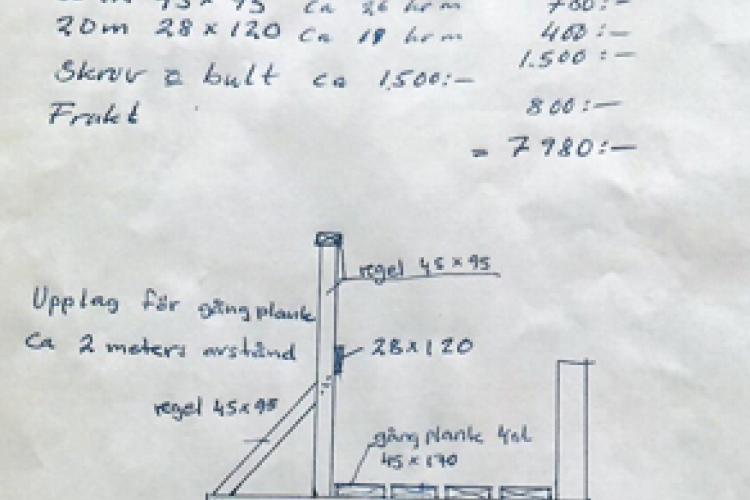 45 x 95 ca 26 kr m 700:-
20m 28 x 120 ca 18 kr m 400:-
1.500:-
Skruv & bult ca 1500:-
Frakt 800:-
= 7980:-
regel 45 x 95
Upplag för gångplank
ca 2 meters avstånd
28 x 120
regel 45x95
gångplank 4st
45 x 170